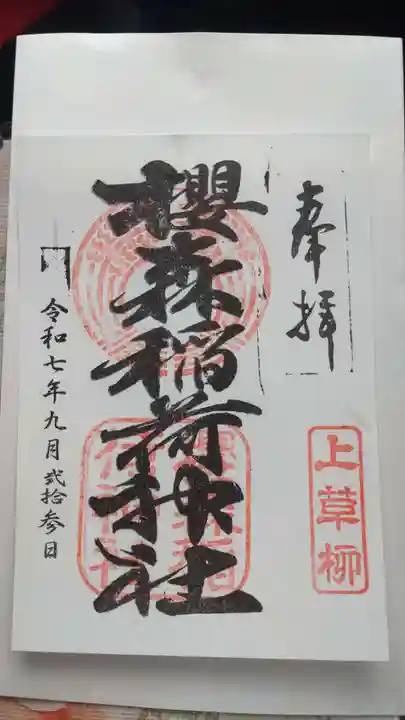 奉拝
上草柳
櫻森稲荷神社
令和七年九月弐拾参日